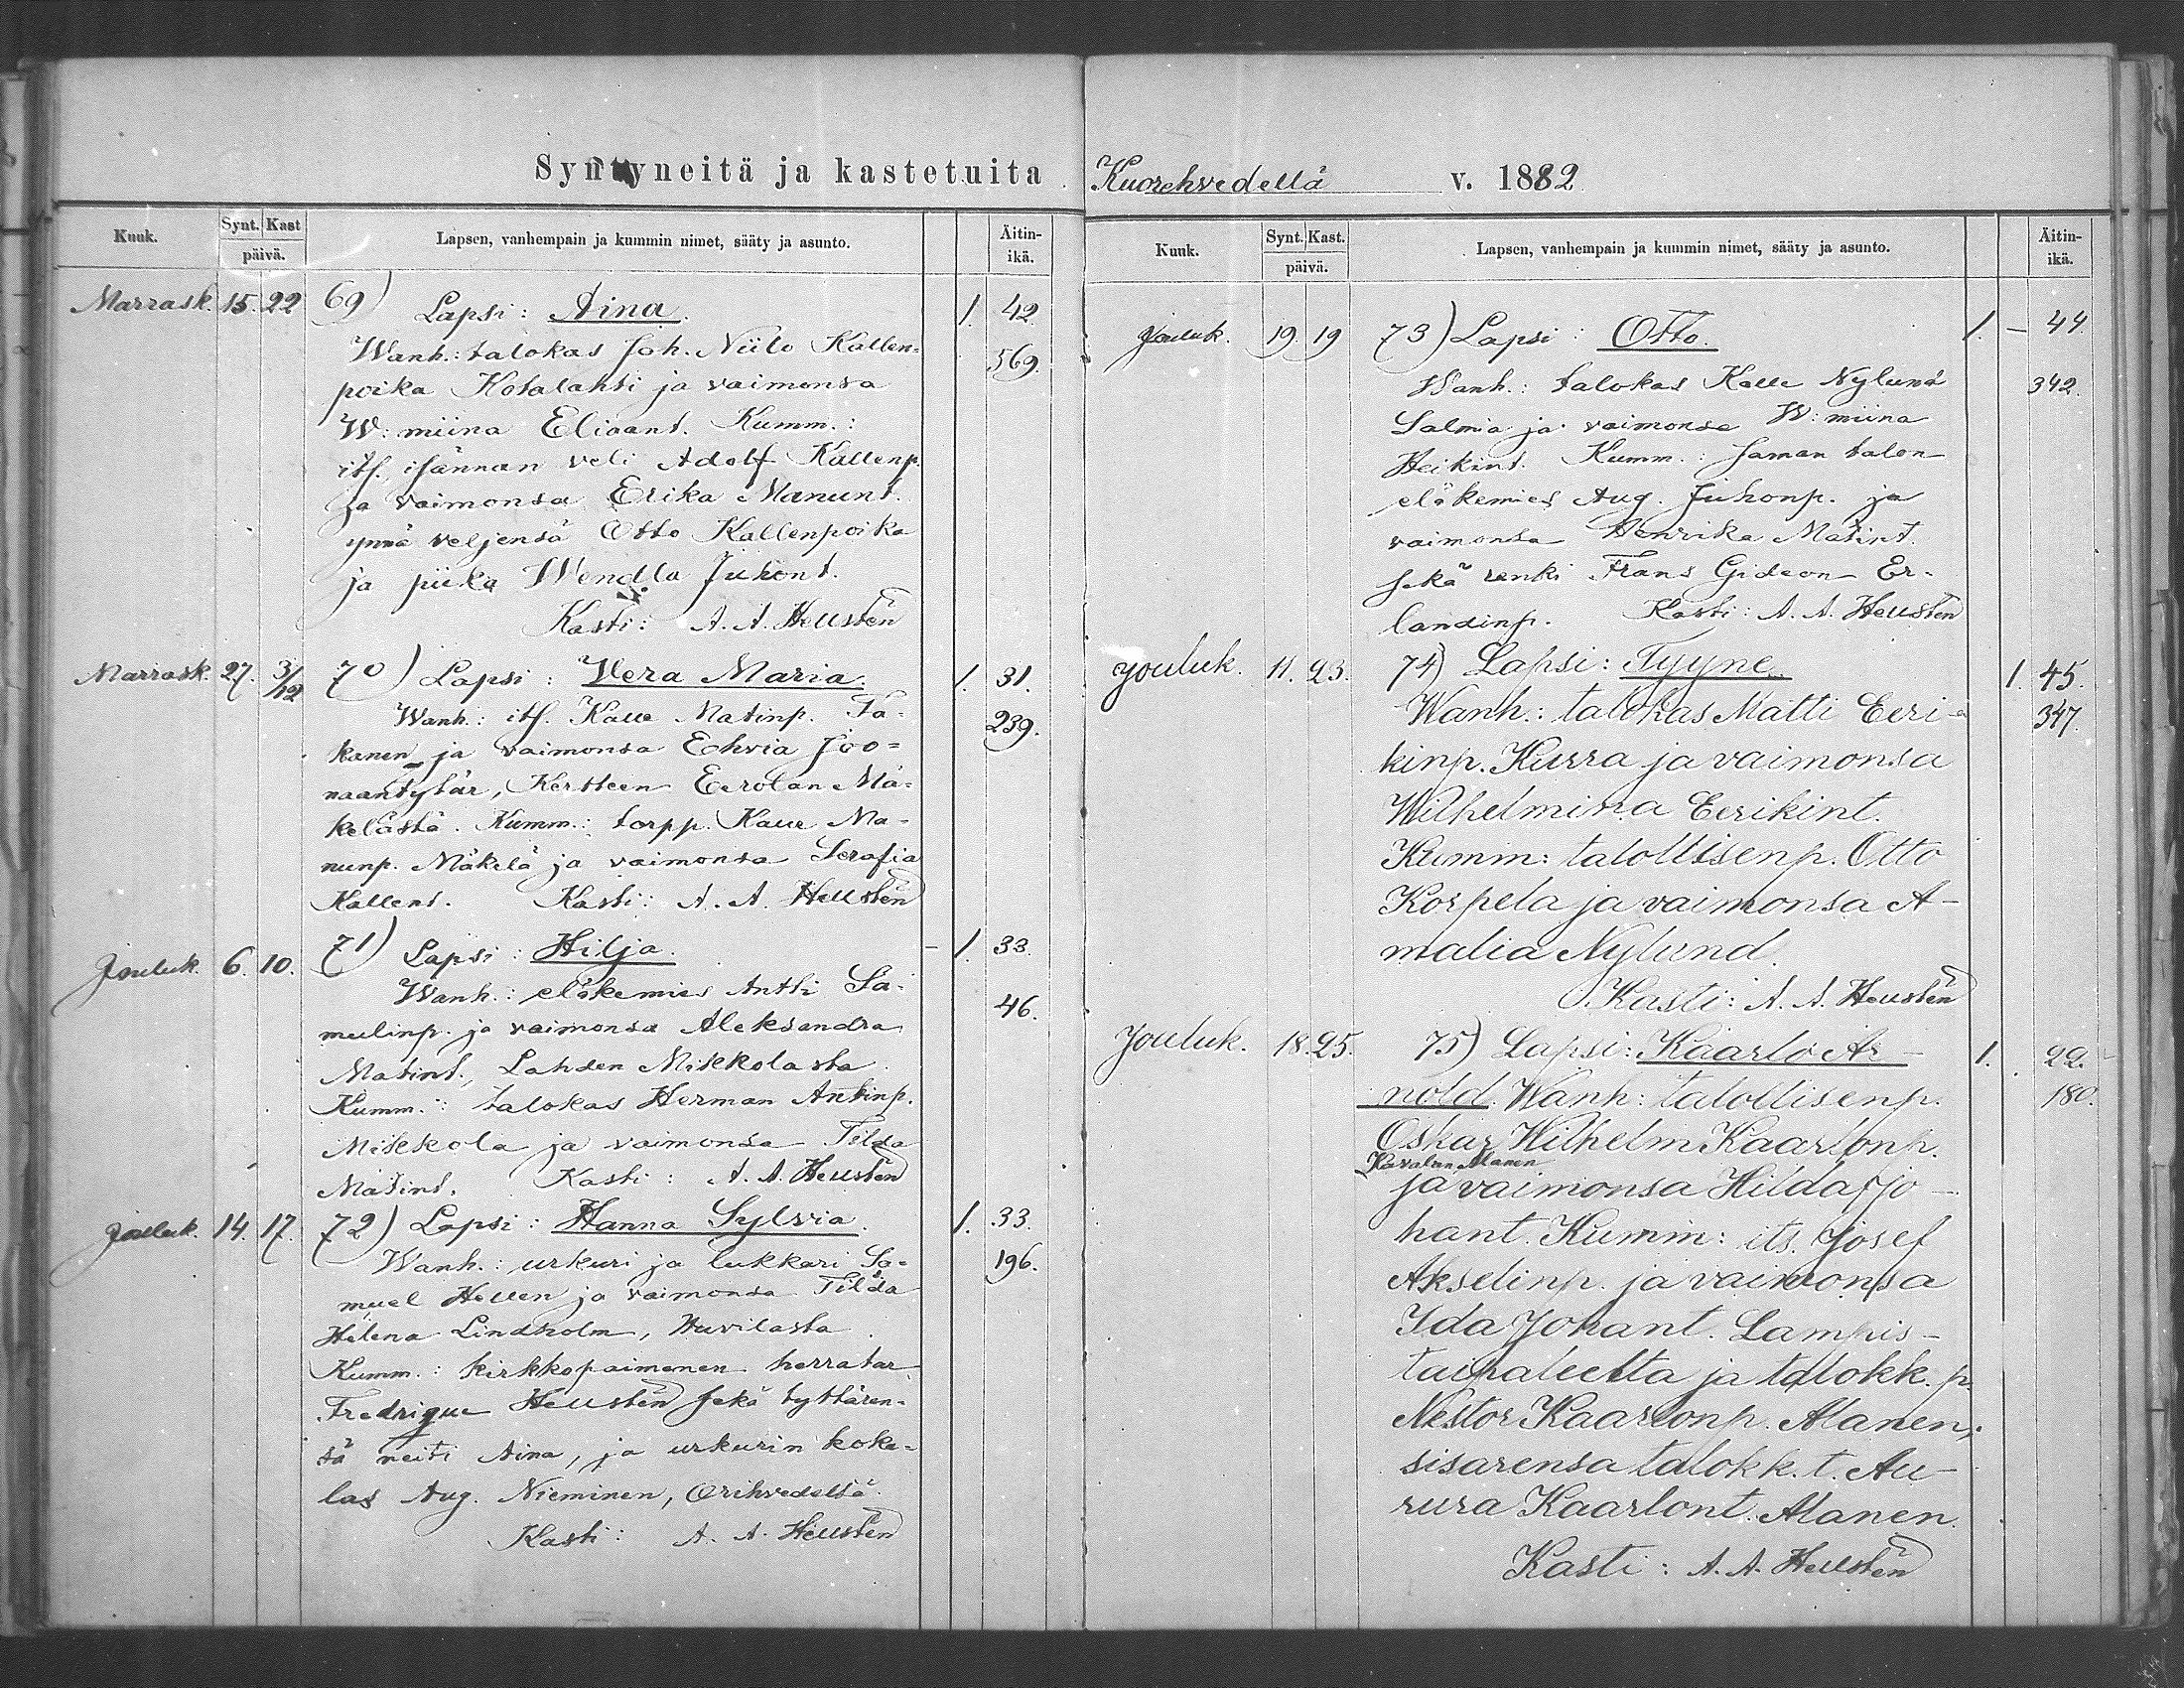 Syntyneitä ja kastetuita
Kuuk. Synt. Kast päivä. Lapsen, vanhempain ja kummin nimet, sääty ja asunto. Äitin-ikä.
Marrask. 15. 22 69) Lapsi: Aina. 1. 42
Wanh.: talokas Joh. Niilo Kallen= 569.
poika Kotalahti ja vaimonsa
W:miina Eliaant. Kumm.:
its. isännän veli Adolf Kallenp.
ja vaimonsa Erika Manunt.
ynnä veljensä Otto Kallenpoika
ja piika Wendla Juhont.
Kasti: A. A. Hellstén
Marrask. 27. 3/12 70) Lapsi: Vera Maria. 1. 31.
Wanh.: its. Kalle Matinp. Ta- 239.
kanen ja vaimonsa Joo=
naantytär, Kertteen Eerolan Mä=
kelästä. Kumm.: torpp. Kalle Ma-
nunp. Mäkelä ja vaimonsa Serafia
Kallent. Kasti: A. A. Hellstén
Jouluk. 6. 10. 71) Lapsi: Hilja. - 1. 33.
Wanh.: eläkemies Antti Sa- 46.
mulinp. ja vaimonsa Aleksandra
Matint., Lahden Mikkolasta.
Kumm.: talokas Herman Antinp.
Mikkola ja vaimonsa Tilda
Matint. Kasti: A. A. Hellstén
Jouluk. 14. 17. 72) Lapsi: Hanna Sylvia. 1. 33.
Wanh.: urkuri ja lukkari Sa= 196.
muel Hellen ja vaimonsa Tilda
Helena Lindholm, Huvilasta.
Kumm.: kirkkopaimenen herratar
Fredrique Hellstén sekä tyttären-
sä neiti Aina, ja urkurin koke=
las Aug. Nieminen, Orihvedeltä.
Kasti: A. A. Hellstén
Kuorehvedellä v. 1882
Kuuk. Synt. Kast. päivä. Lapsen, vanhempain ja kummin nimet, sääty ja asunto. Äitin-ikä.
Jouluk. 19. 19 73) Lapsi: Otto. 1. - 44
Wanh.: talokas Kalle Nylund 342.
Salmia ja vaimonsa W:miina
Heikint. Kumm.: saman talon
eläkemies Aug. Juhonp. ja
vaimonsa Henrika Matint.
sekä renki Frans Gideon Er-
landinp. Kasti: A. A. Hellstén
Jouluk. 11. 23. 74) Lapsi: Tyyne. 1. 45.
Wanh.: talokas Matti Eeri- 347.
kinp. Kurra ja vaimonsa
Wilhelmina Eerikint.
Kumm: talollisenp. Otto
Korpela ja vaimonsa A-
malia Nylund.
Kasti: A. A. Hellstén
Jouluk. 18. 25. 75) Lapsi: Kaarlo Ar- 1. 22.
nold. Wanh: talollisenp. 180.
Oskar Wilhelm Kaarlonp.
Alanen
ja vaimonsa Hilda Jo-
hant. Kumm: its. Josef
Akselinp. ja vaimonsa
Ida Johant. Lampis-
taipaleelta ja talokk. p.
Nestor Kaarlonp. Alanen,
sisarensa talokk. t. Au-
rura Kaarlont. Alanen.
Kasti: A. A. Hellstén